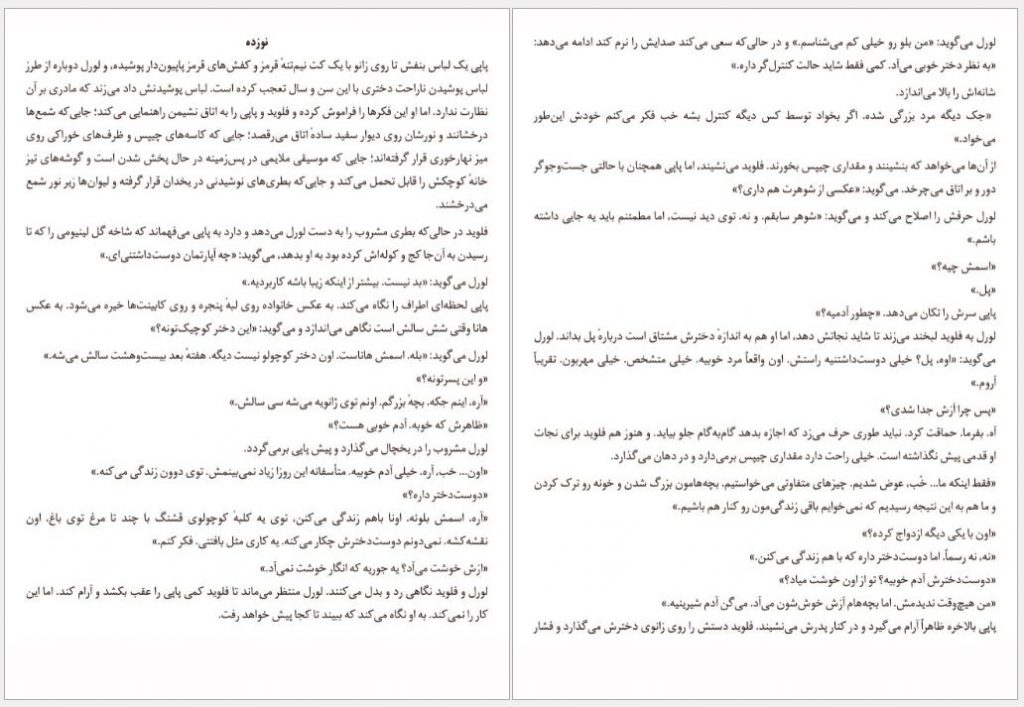 نوزده
پاپی یک لباس بنفش تا روی زانو با یک کت نیم‌تنهٔ قرمز و کفش‌های قرمز پاپیون‌دار پوشیده، و لورل دوباره از طرز
لباس پوشیدن ناراحت دختری با این سن و سال تعجب کرده است. لباس پوشیدنش داد می‌زند که مادری بر آن
نظارت ندارد. اما او این فکرها را فراموش کرده و فلوید و پاپی را به اتاق نشیمن راهنمایی می‌کند؛ جایی‌که شمع‌ها
درخشانند و نورشان روی دیوار سفید سادهٔ اتاق می‌رقصد؛ جایی که کاسه‌های چیپس و ظرف‌های خوراکی روی
میز نهارخوری قرار گرفته‌اند؛ جایی که موسیقی ملایمی در پس‌زمینه در حال پخش شدن است و گوشه‌های تیز
خانهٔ کوچکش را قابل تحمل می‌کند و جایی‌که بطری‌های نوشیدنی در یخدان قرار گرفته و لیوان‌ها زیر نور شمع
می‌درخشند.
فلوید در حالی‌که بطری مشروب را به دست لورل می‌دهد و دارد به پاپی می‌فهماند که شاخه گل لینیومی را که تا
رسیدن به آن‌جا کج و کوله‌اش کرده بود به او بدهد، می‌گوید: «چه آپارتمان دوست‌داشتنی‌ای.»
لورل می‌گوید: «بد نیست. بیشتر از اینکه زیبا باشه کاربردیه.»
پاپی لحظه‌ای اطراف را نگاه می‌کند. به عکس خانواده روی لبهٔ پنجره و روی کابینت‌ها خیره می‌شود. به عکس
هانا وقتی شش سالش است نگاهی می‌اندازد و می‌گوید: «این دختر کوچیک‌تونه؟»
لورل می‌گوید: «بله. اسمش هاناست. اون دختر کوچولو نیست دیگه. هفتهٔ بعد بیست‌وهشت سالش می‌شه.»
«و این پسرتونه؟»
«آره. اینم جکه. بچهٔ بزرگم. اونم توی ژانویه می‌شه سی سالش.»
«ظاهرش که خوبه. آدم خوبی هست؟»
لورل مشروب را در یخچال می‌گذارد و پیش پاپی برمی‌گردد.
«اون... خب، آره. خیلی آدم خوبیه. متأسفانه این روزا زیاد نمی‌بینمش. توی دوون زندگی می‌کنه.»
«دوست‌دختر داره؟»
«آره. اسمش بلونه. اونا باهم زندگی می‌کنن، توی یه کلبهٔ کوچولوی قشنگ با چند تا مرغ توی باغ. اون
نقشه‌کشه. نمی‌دونم دوست‌دخترش چکار می‌کنه. یه کاری مثل بافتنی. فکر کنم.»
«ازش خوشت می‌آد؟ یه جوریه که انگار خوشت نمی‌آد.»
لورل و فلوید نگاهی رد و بدل می‌کنند. لورل منتظر می‌ماند تا فلوید کمی پاپی را عقب بکشد و آرام کند. اما این
کار را نمی‌کند. به او نگاه می‌کند که ببیند تا کجا پیش خواهد رفت.
لورل می‌گوید: «من بلو رو خیلی کم می‌شناسم.» و در حالی‌که سعی می‌کند صدایش را نرم کند ادامه می‌دهد:
«به نظر دختر خوبی می‌آد. کمی فقط شاید حالت کنترل‌گر داره.»
شانه‌اش را بالا می‌اندازد.
«جک دیگه مرد بزرگی شده. اگر بخواد توسط کس دیگه کنترل بشه خب فکر می‌کنم خودش این‌طور
می‌خواد.»
از آن‌ها می‌خواهد که بنشینند و مقداری چیپس بخورند. فلوید می‌نشیند، اما پاپی همچنان با حالتی جست‌وجوگر
دور و بر اتاق می‌چرخد. می‌گوید: «عکسی از شوهرت هم داری؟»
لورل حرفش را اصلاح می‌کند و می‌گوید: «شوهر سابقم. و نه. توی دید نیست، اما مطمئنم باید یه جایی داشته
باشم.»
«اسمش چیه؟»
«پل.»
پاپی سرش را تکان می‌دهد. «چطور آدمیه؟»
لورل به فلوید لبخند می‌زند تا شاید نجاتش دهد، اما او هم به اندازهٔ دخترش مشتاق است دربارهٔ پل بداند. لورل
می‌گوید: «اوه، پل؟ خیلی دوست‌داشتنیه راستش. اون واقعاً مرد خوبیه. خیلی متشخص. خیلی مهربون. تقریباً
آروم.»
«پس چرا آزش جدا شدی؟»
آه. بفرما. حماقت کرد. نباید طوری حرف می‌زد که اجازه بدهد گام‌به‌گام جلو بیاید. و هنوز هم فلوید برای نجات
او قدمی پیش نگذاشته است. خیلی راحت دارد مقداری چیپس برمی‌دارد و در دهان می‌گذارد.
«فقط اینکه ما... خُب، عوض شدیم. چیزهای متفاوتی می‌خواستیم. بچه‌هامون بزرگ شدن و خونه رو ترک کردن
و ما هم به این نتیجه رسیدیم که نمی‌خوایم باقی زندگی‌مون رو کنار هم باشیم.»
«اون با یکی دیگه ازدواج کرده؟»
«نه، نه رسماً. اما دوست‌دختر داره که با هم زندگی می‌کنن.»
«دوست‌دخترش آدم خوبیه؟ تو از اون خوشت میاد؟»
«من هیچ‌وقت ندیدمش. اما بچه‌هام آزش خوش‌شون می‌آد. می‌گن آدم شیرینیه.»
پاپی بالاخره ظاهراً آرام می‌گیرد و در کنار پدرش می‌نشیند. فلوید دستش را روی زانوی دخترش می‌گذارد و فشار